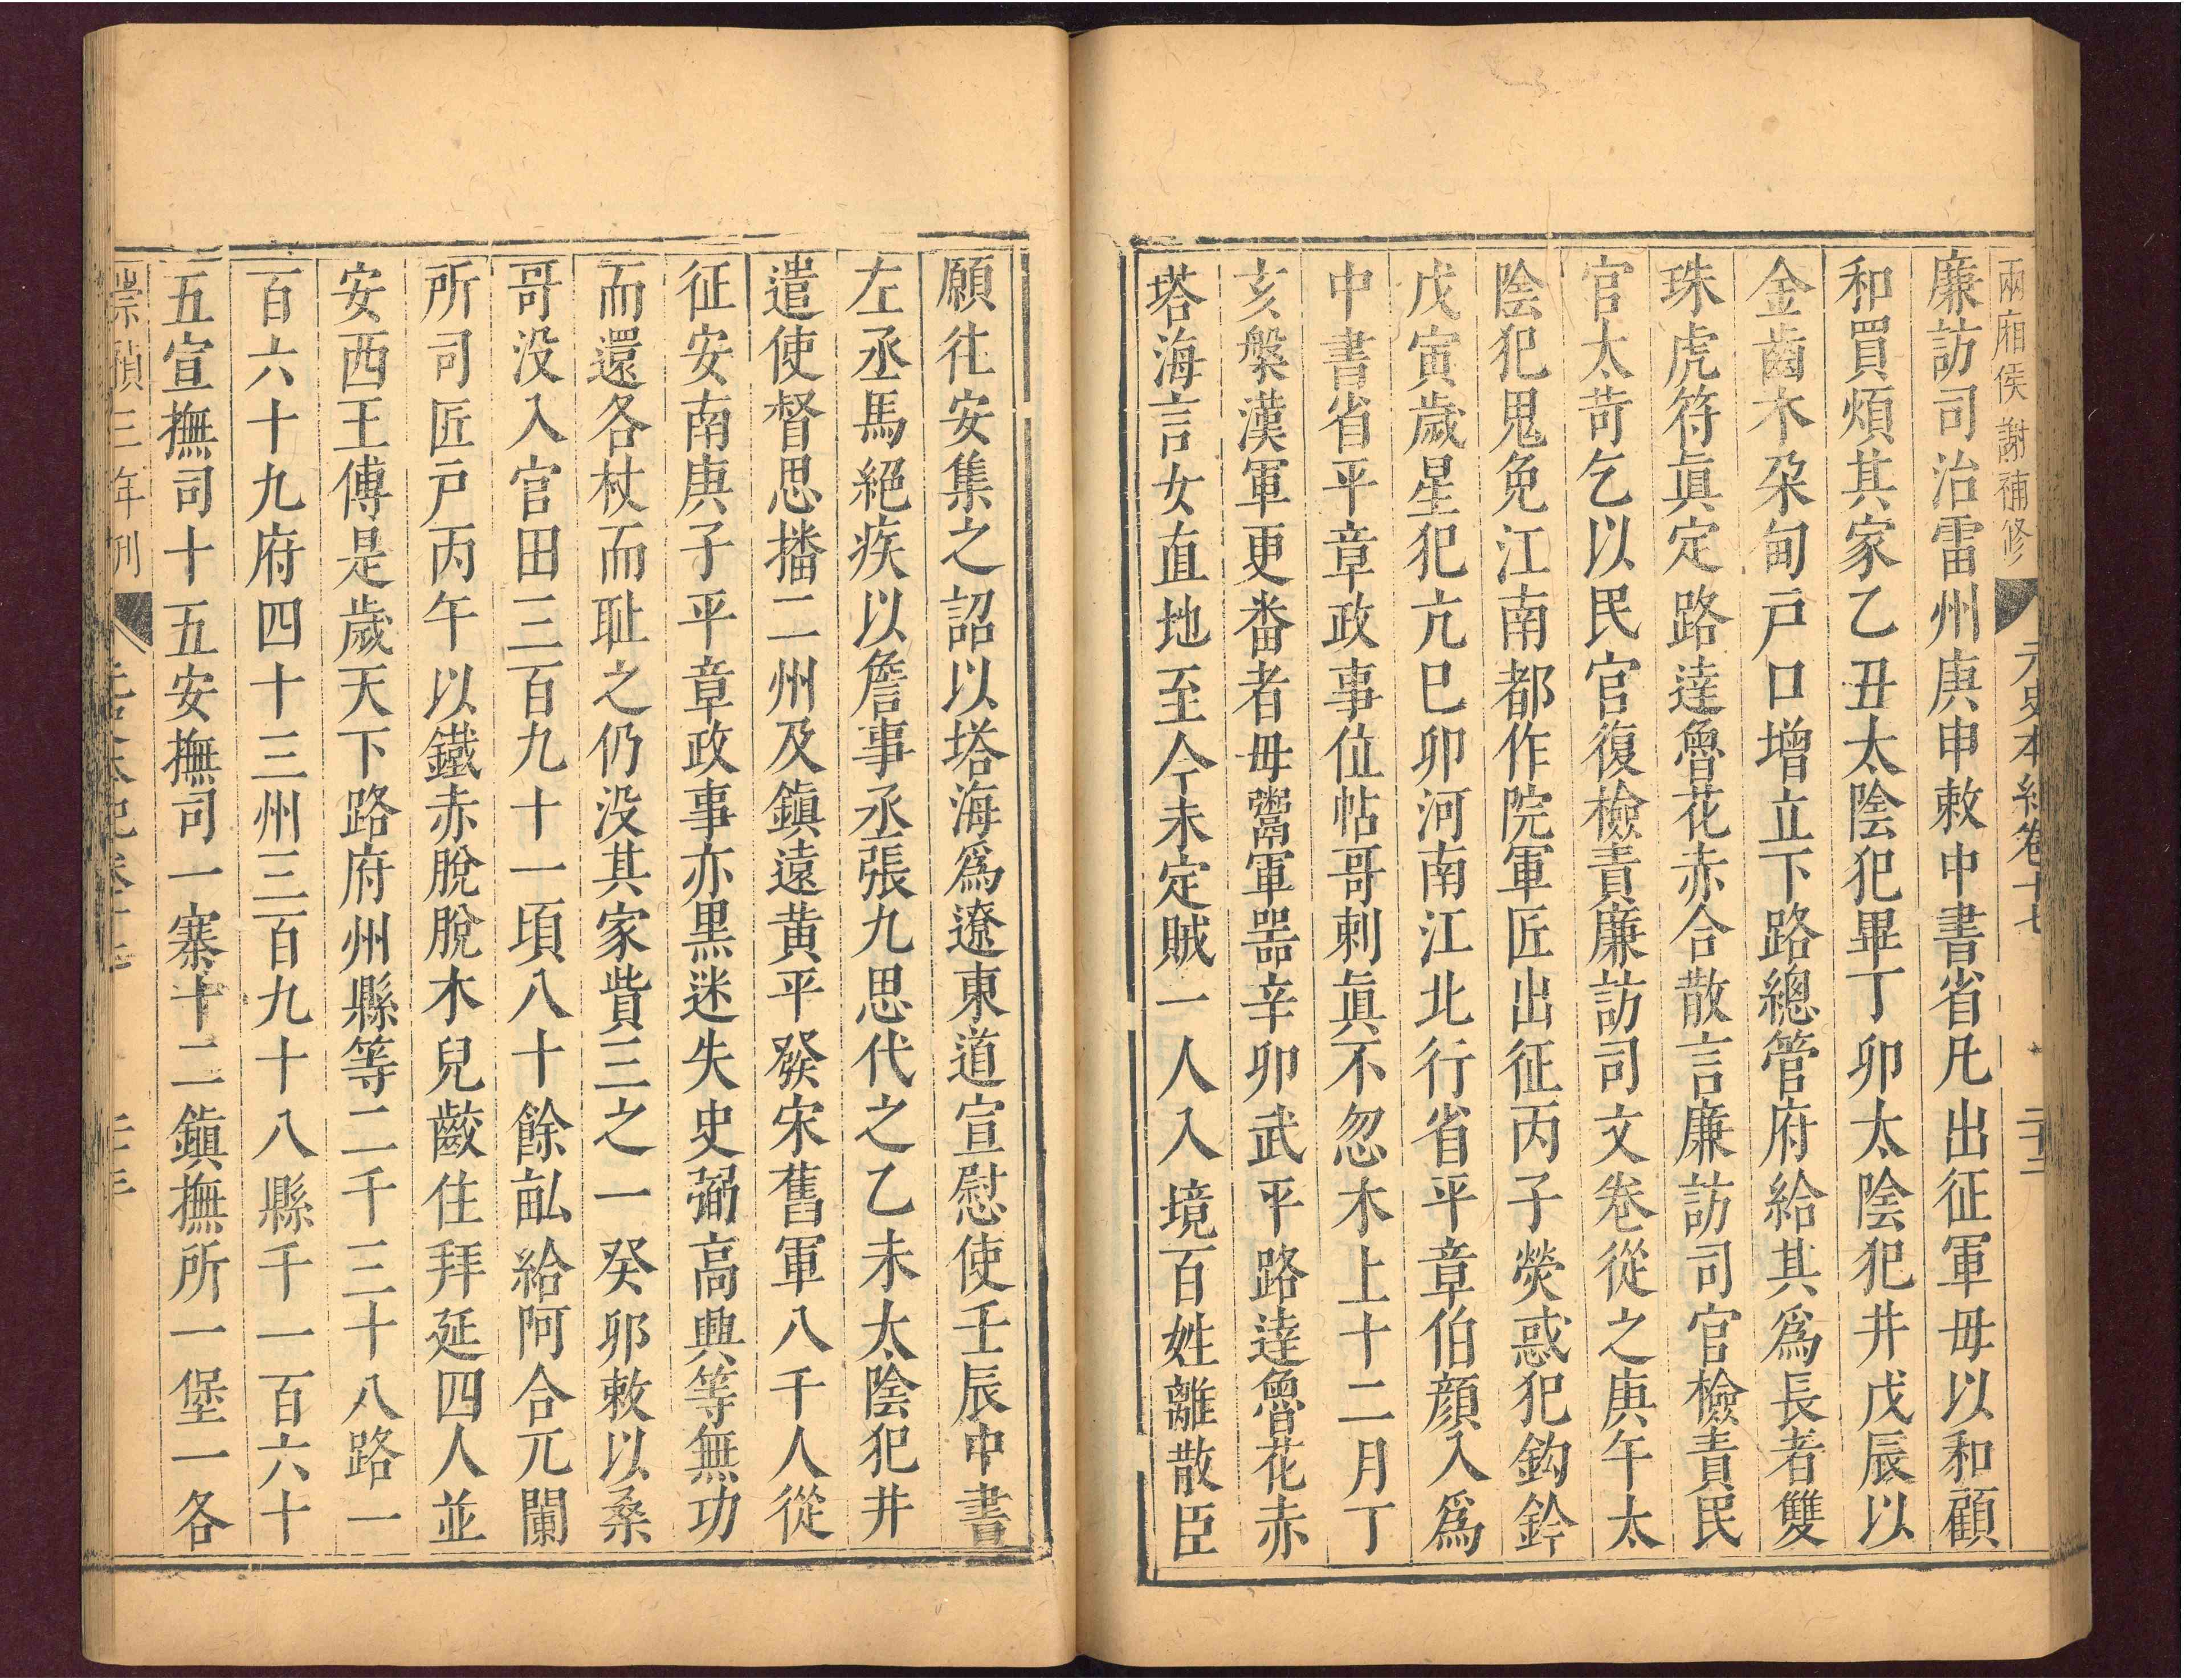 兩廂侯謝補修 元史本紀卷十七 二十二
廉訪司治雷州庚申敕中書省凡出征軍毋以和顧
和買煩其家乙丑太陰犯畢丁卯太陰犯井戊辰以
金齒木朶甸戸口增立下路總管府給其爲長者雙
珠虎符眞定路達魯花赤合散言廉訪司官檢責民
官太苛乞以民官復檢責廉訪司文卷從之庚午太
陰犯鬼免江南都作院軍匠出征丙子熒惑犯鈎鈐
戊寅歲星犯亢巳卯河南江北行省平章伯顔入爲
中書省平章政事位帖哥剌眞不忽木上十二月丁
亥槃漢軍更番者毋鬻軍器辛卯武平路達魯花赤
塔海言女直地至今未定賊一人入境百姓離散臣
願往安集之詔以塔海爲遼東道宣慰使壬辰中書
左丞馬絕疾以詹事丞張九思代之乙未太陰犯井
遣使督思播二州及鎮遠黄平發宋舊軍八千人從
征安南庚子平章政事亦黒迷失史弼高興等無功
而還各杖而耻之仍没其家貲三之一癸卯敕以桑
哥没入官田三百九十一頃八十餘畝給阿合兀闌
所司匠戸丙午以鐵赤脫脫木兒齾住拜延四人並
安西王傅是歲天下路府州縣等二千三十八路一
百六十九府四十三州三百九十八縣千一百六十
五宣撫司十五安撫司一寨十二鎮撫所一堡一各
崇禎三年刊